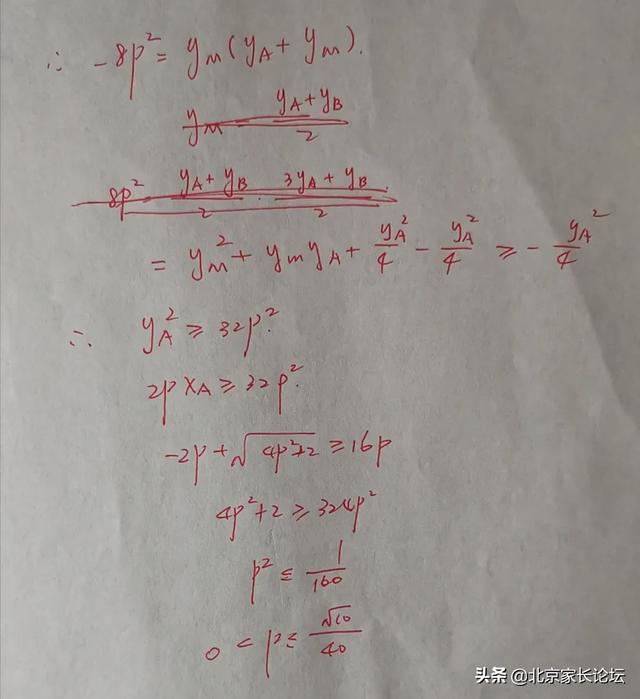 ∴ -8p² = yₘ(y_A + yₘ).
yₘ = (y_A + y_B)/2
-8p² = (y_A + y_B)/2 · (3y_A + y_B)/2
= yₘ² + yₘy_A + y_A²/4 - y_A²/4 ≥ - y_A²/4
∴ y_A² ≥ 32p².
2px_A ≥ 32p².
-2p + √(4p²+2) ≥ 16p
4p²+2 ≥ 324p²
p² ≤ 1/160
0 < p ≤ √10/40
头条 @北京家长论坛